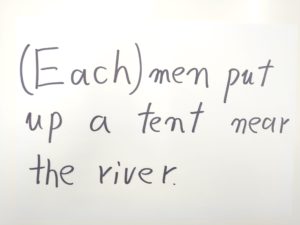 (Each) men put
up a tent near
the river.